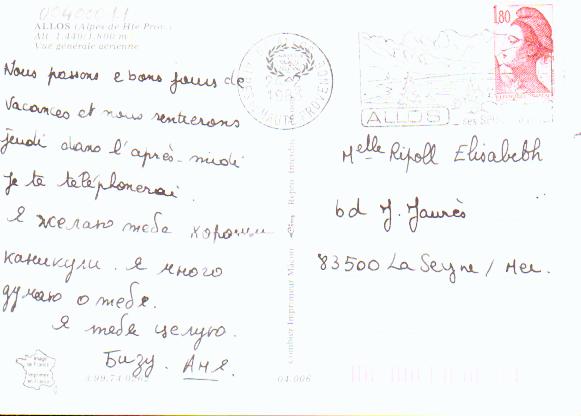 00400011
ALLOS (Alpes de Hte Prov.)
Alt. 1.440/1.800 m
Vue générale aérienne
Nous passons e bons jours de
vacances et nous rentrerons
jeudi dans l'après-midi
Je te téléphonerai.
Я желаю тебе хороши
каникули. Я много
думаю о тебе.
Я тебя целую.
Бизу. Аня.
1,80
ALLOS
HAUTE PROVENCE
Melle Ripoll Elisabeth
bd J. Jaurès
83500 La Seyne / Mer.
Combier Imprimeur Macon
04.006